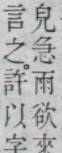 兒急雨欲來
言之。許以字